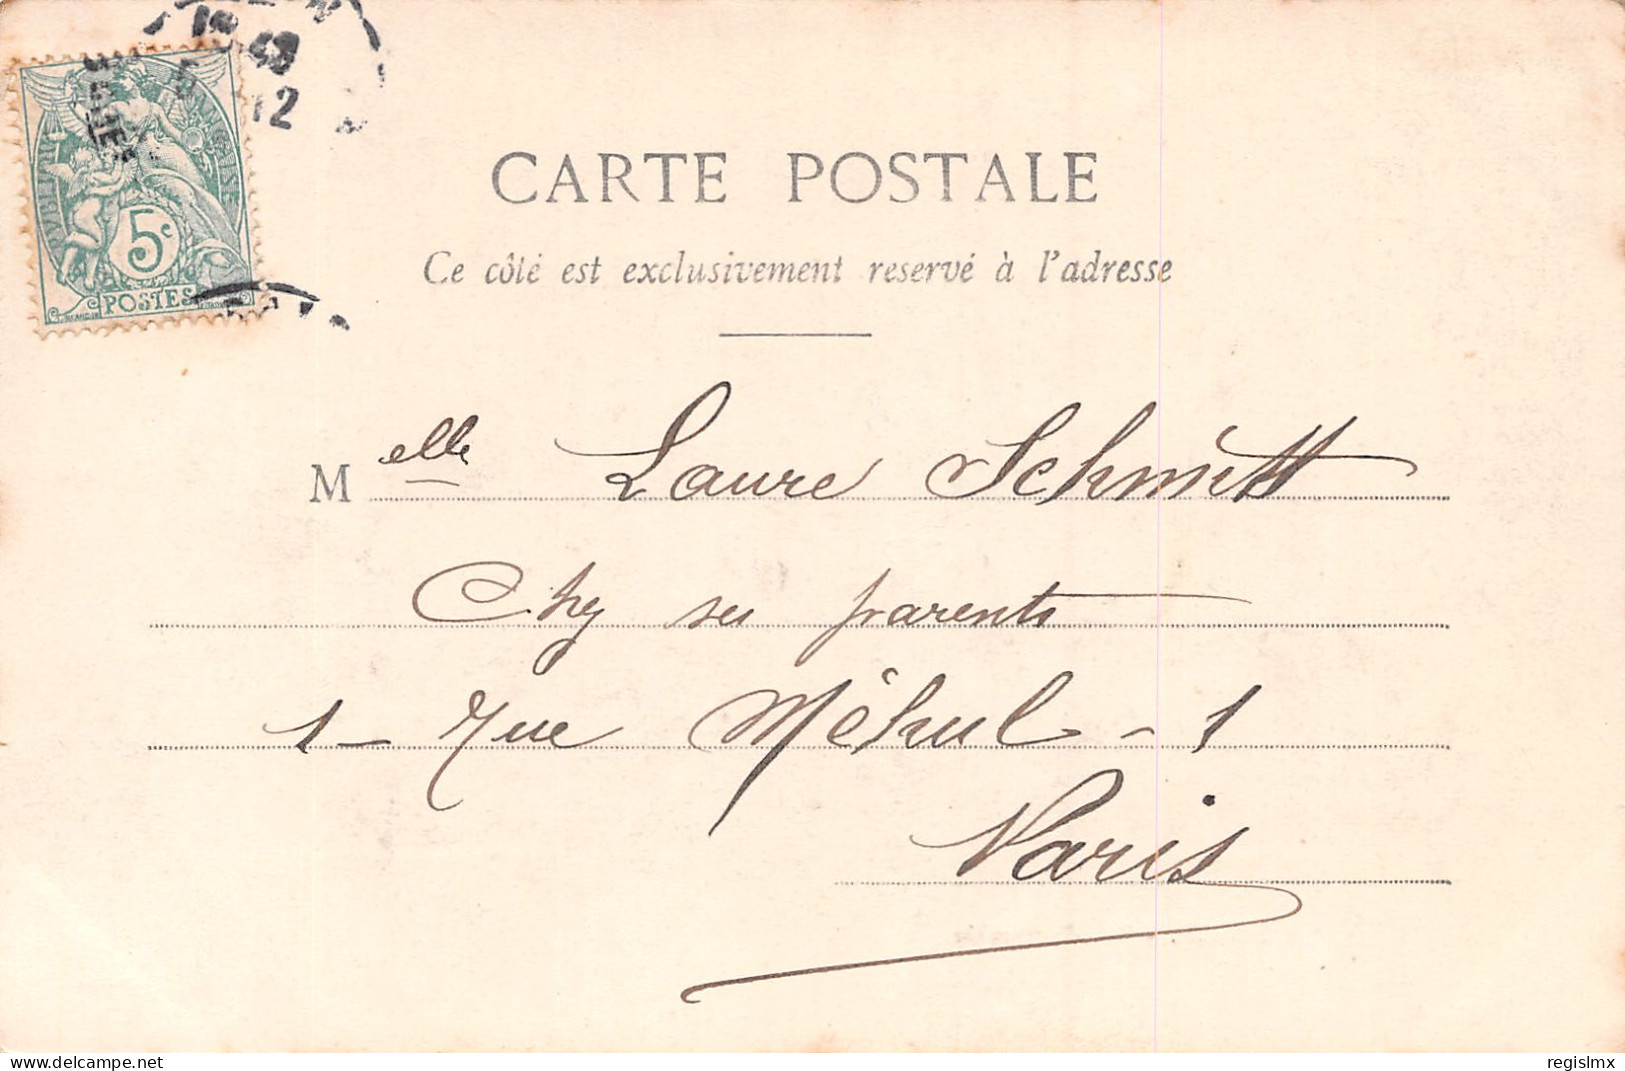 12
RÉPUBLIQUE FRANÇAISE
5c
POSTES
CARTE POSTALE
Ce côté est exclusivement reservé à l'adresse
Melle Laure Schmitt
Chz ses parents
1 - Rue Méhul - 1
Paris
delcampe.net
regislmx